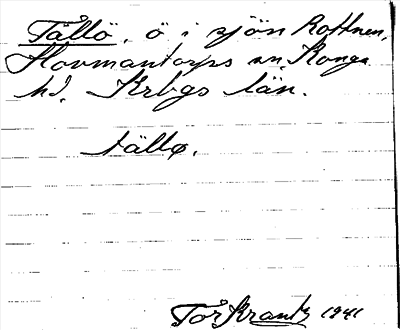 Tållö, ö i sjön Rottnen,
Hovmantorps sn, Konga
hd, Krbgs län.
tållø.
Tor Krantz 1941